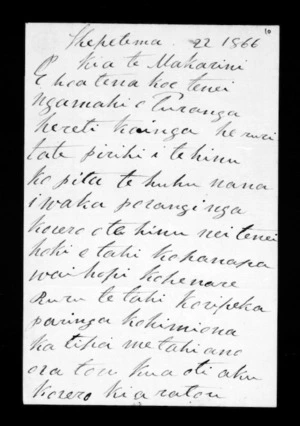 Hepetema. 22 1866
Kia te Makarini
E hoa tena koe tenei
nga mahi o Turanga
kereti kainga he ruri
tate pirihi i te hinu
ko pita te huhu nana
i waka porangi nga
korero o te hinu nei tenei
hoki e tahi ko hanapa
wai hopi ko henare
Ruru te tahi ko ripeka
paringa ko himiona
ka tipa me tahi ano
ora tou kua oti aku
korero kia ratou